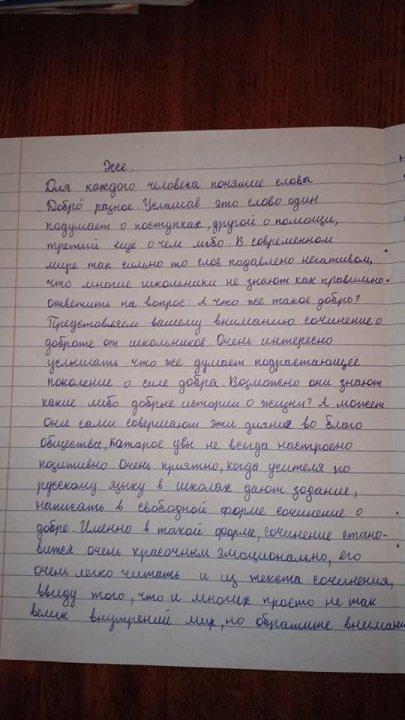 Эссе.
Для каждого человека понятие слова
"Добро" разное. Услышав это слово один
подумает о поступках, другой о помощи,
третий ещё о чем либо. В современном
мире так сильно то слов подавлено негативом,
что многие школьники не знают как правильно
ответить на вопрос: А что же такое добро?
Представляем вашему вниманию сочинение о
доброте от школьников. Очень интересно
услышать что же думает подрастающее
поколение о силе добра. Возможно они знают
какие либо добрые истории о жизни? А может
они сами совершают эти дияния во благо
общества, катарое увы не всегда настроено
позитивно. Очень приятно, когда учителя по
русскому языку в школах дают задание,
написать в свободной форме сочинение о
добре. Именно в такой форме, сочинение стано-
вится очень красочным эмоционально, его
очень легко читать и из текста сочинения,
ввиду того, что и многих просто не так
велик внутрений мир, но обратите внимани